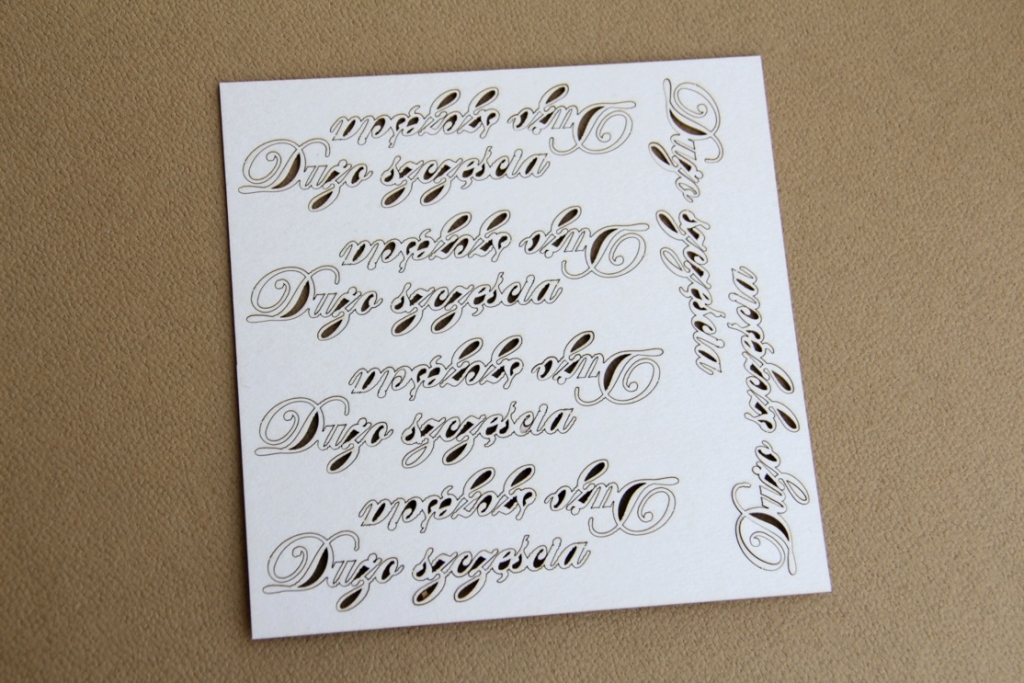 Dużo szczęścia
Dużo szczęścia
Dużo szczęścia
Dużo szczęścia
Dużo szczęścia
Dużo szczęścia
Dużo szczęścia
Dużo szczęścia
Dużo szczęścia
Dużo szczęścia